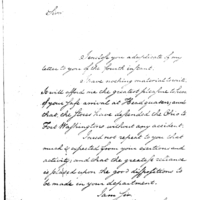 Sir
I enclose you a duplicate of my
letter to you of the fourth instant.
I have nothing material to write
It will afford me the greatest pleasure to hear
of your safe arrival at Headquarters and
that the stores have descended the Ohio to
Fort Washington without any accident.
I need not repeat to you that
much is expected from your exertions and
activity, and that the greatest reliance
is placed upon the good dispositions to
be made in your department.
I am Sir